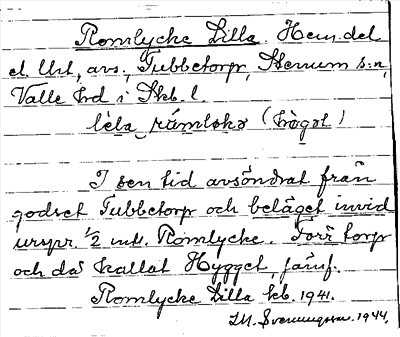 Romlycke Lilla. Hem.del
el. Urt, avs., Tubbetorp, Stenum s:n,
Valle hd i Skb. l.
lela rúmloko (högst)
I sen tid avsöndrat från
godset Tubbetorp och beläget invid
urspr. 1/2 mtl. Romlycke. Förr torp
och då kallat Hygget, jämf.
Romlycke Lilla kb. 1941.
1944.